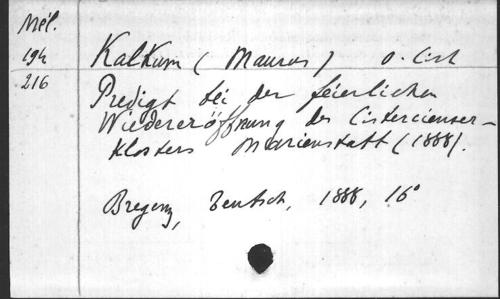 Mél.
194
216
Kalkum (Maurus) O. Cist
Predigt bei der feierlichen
Wiedereröffnung des Cistercienser-
Klosters Marienstatt (1888).
Bregenz, Teutsch, 1888, 16°